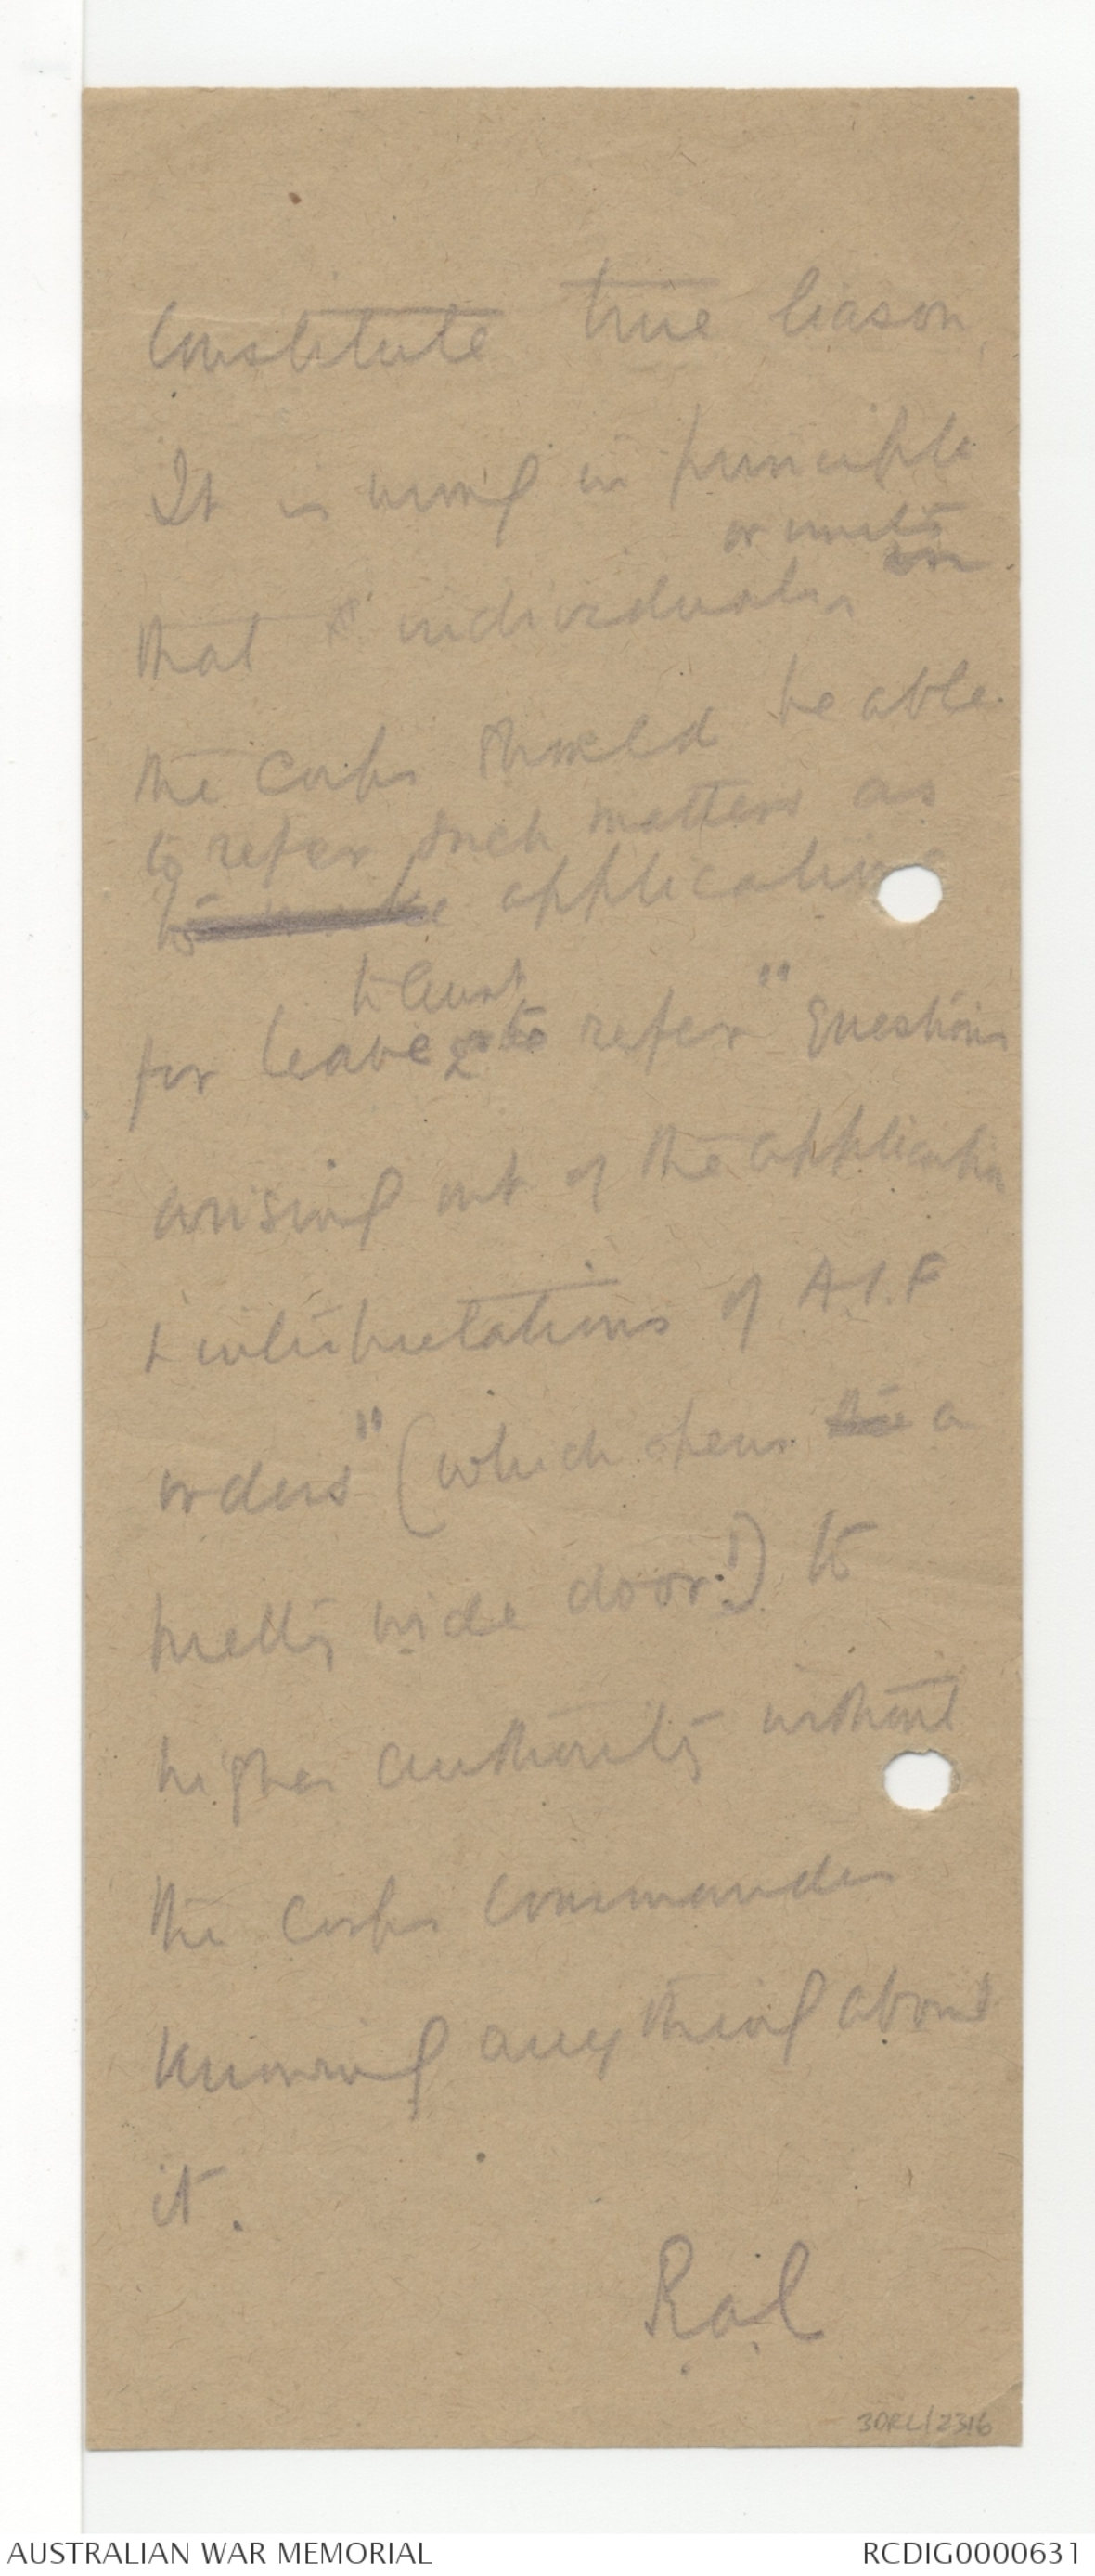 Constitute true liason
It is wrong in principle
or units
that individuals in
the Corps should be able
to refer such matters as
to make applications
for leave to refer "Questions
arising out of the application
& interpretations of A.I.F
orders" (which opens the a
pretty wide door!) to
higher authority without
the Corps Commander
knowing any thing about
it.
RaL
3DRL/2316
AUSTRALIAN WAR MEMORIAL
RCDIG0000631